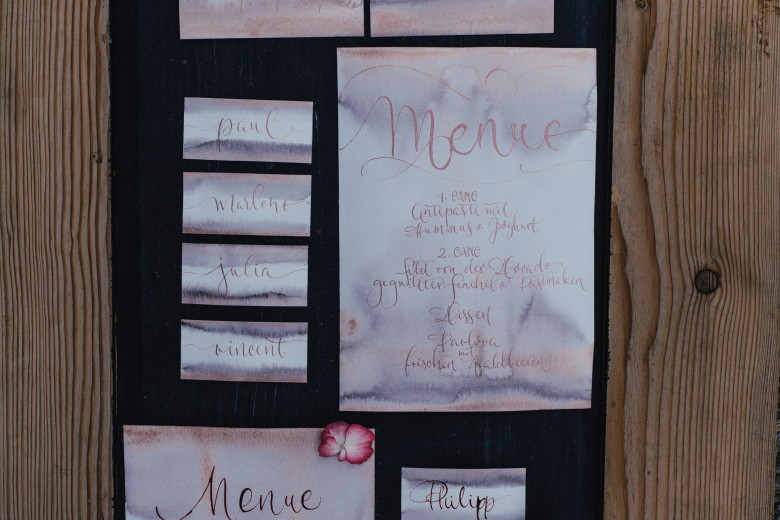 paul
marlene
julia
vincent
Menue
1. GANG
Antipasti mit
Hummus & Joghurt
2. GANG
Filet von der Dorade
gegrillter Fenchel &
Dessert
Pavlova
mit
frischen Waldbeeren
Menue
Philipp